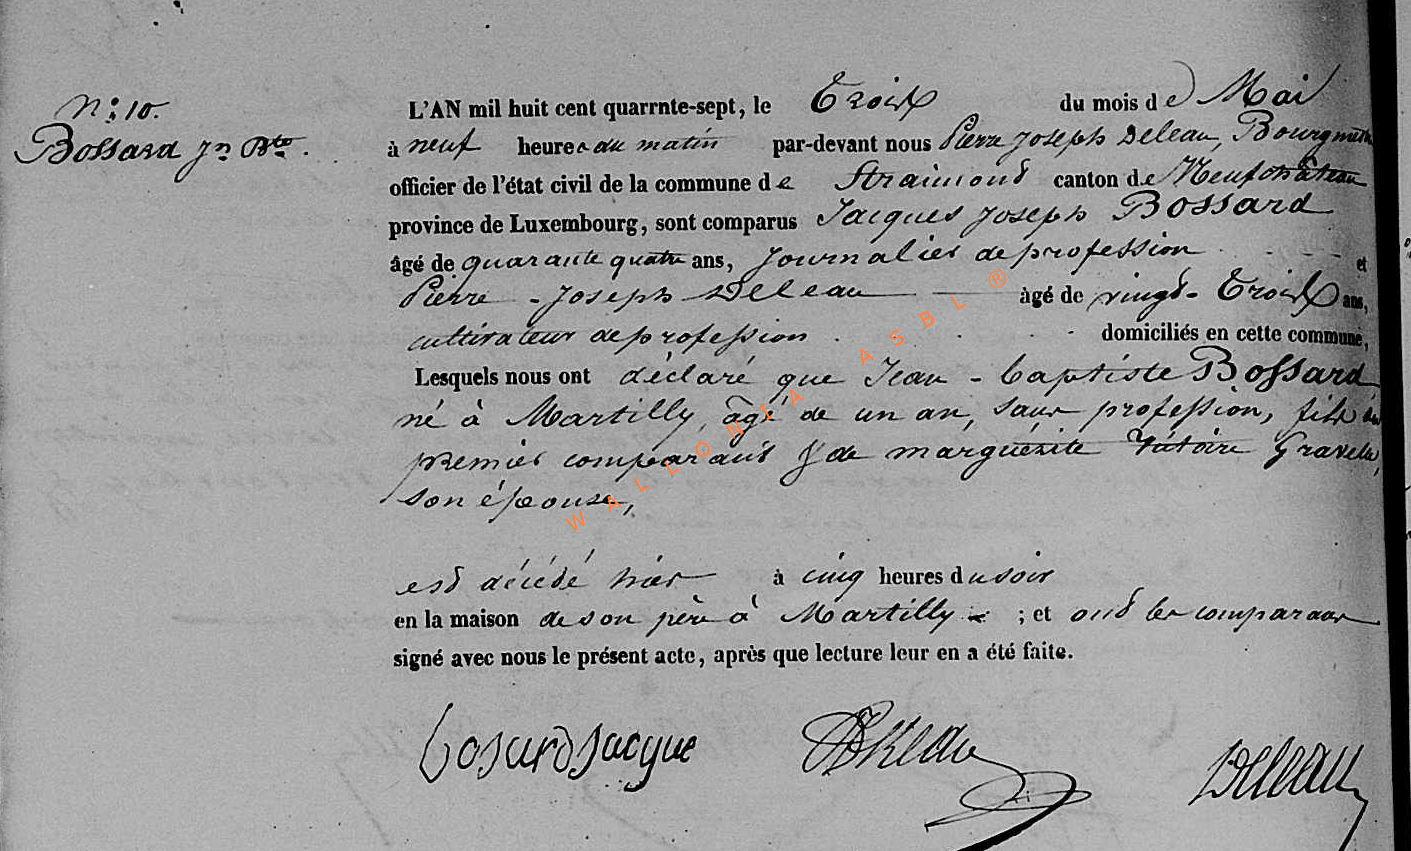 N: 10.
Bossard Jn Bte.
L'AN mil huit cent quarrnte-sept, le Trois du mois de Mai
à neuf heures du matin par-devant nous Pierre Joseph Deleau, Bourgmestre
officier de l'état civil de la commune de Straimont canton de Neufchâteau
province de Luxembourg, sont comparus Jacques Joseph Bossard
âgé de quarante quatre ans, Journalier de profession et
Pierre - Joseph Deleau âgé de vingt-Trois ans,
cultivateur de profession domiciliés en cette commune,
Lesquels nous ont déclaré que Jean-baptiste Bossard
né à Martilly, âgé de un an, sans profession, fils du
premier comparant & de marguerite Victoire
son épouse,
est décédé hier à cinq heures du soir
en la maison de son père à Martilly ; et ont les comparans
signé avec nous le présent acte, après que lecture leur en a été faite.
bosard Jacque Deleau
WALLONIA ASBL ®